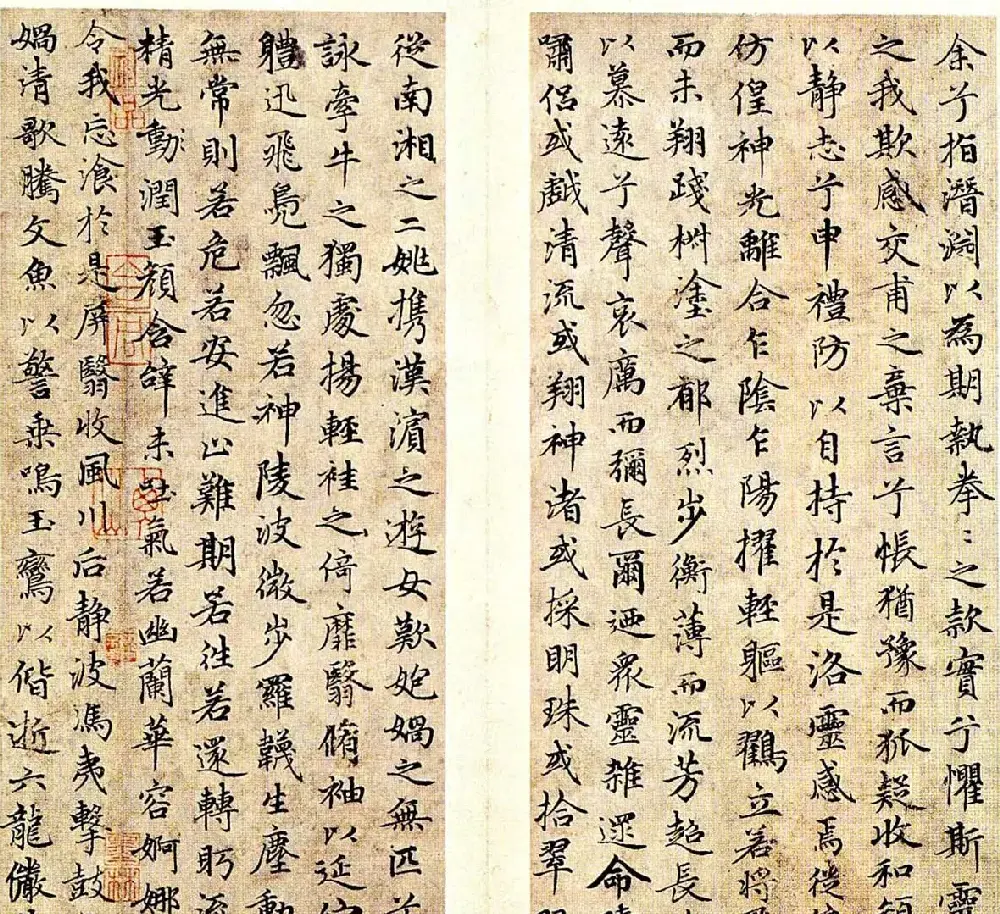 余兮指潛淵以為期執拳〻之款實兮懼斯靈
之我欺感交甫之棄言兮悵猶豫而狐疑收和
以静志兮申禮防以自持於是洛靈感焉徙
仿偟神光離合乍陰乍陽擢輕軀以鸖立若將
而未翔踐椒塗之郁烈步衡薄而流芳超長
以慕遠兮聲哀厲而彌長爾迺衆靈雑遝命
嘯侣或戯清流或翔神渚或採明珠或拾翠
從南湘之二姚携漢濵之遊女歎匏媧之無匹兮
詠牽牛之獨處揚輕袿之倚靡翳脩袖以延
軆迅飛鳧飄忽若神陵波微步羅韈生塵動
無常則若危若安進止難期若往若還轉眄流
精光動潤玉顔含辝未吐氣若幽蘭華容婀娜
令我忘飡於是屏翳收風川后静波馮夷擊鼓
媧清歌騰文魚以警乗鳴玉鸞以偕逝六龍儼